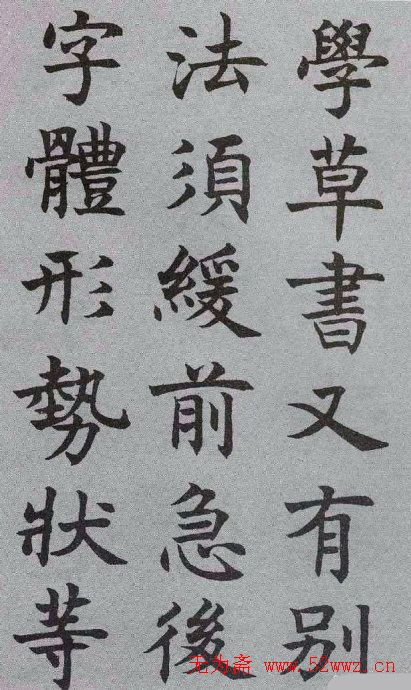 學草書又有别
法須緩前急後
字體形勢狀等
无为斋 www.52wwz.cn